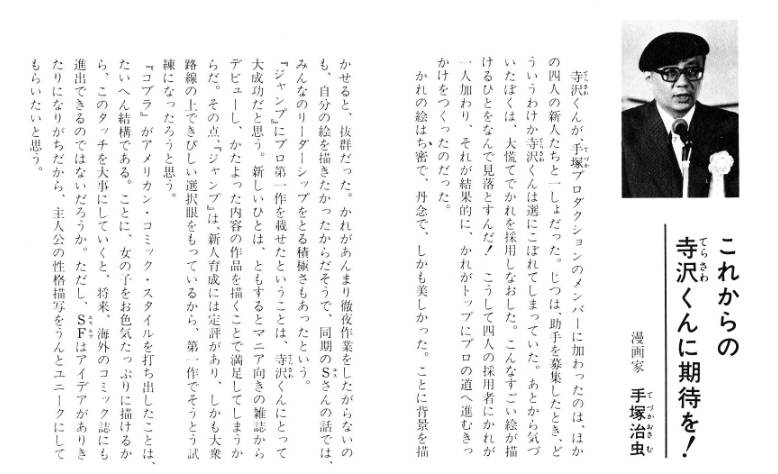 これからの
寺沢くんに期待を!
漫画家 手塚治虫
寺沢くんが、手塚プロダクションのメンバーに加わったのは、ほか
の四人の新人たちと一しょだった。じつは、助手を募集したとき、ど
ういうわけか寺沢くんは選にこぼれてしまっていた。あとから気づ
いたぼくは、大慌てでかれを採用しなおした。こんなすごい絵が描
けるひとをなんで見落とすんだ! こうして四人の採用者にかれが
一人加わり、それが結果的に、かれがトップにプロの道へ進むきっ
かけをつくったのだった。
かれの絵はち密で、丹念で、しかも美しかった。ことに背景を描
かせると、抜群だった。かれがあんまり徹夜作業をしたがらないの
も、自分の絵を描きたかったからだそうで、同期のSさんの話では、
みんなのリーダーシップをとる積極さもあったという。
『ジャンプ』にプロ第一作を載せたということは、寺沢くんにとって
大成功だと思う。新しいひとは、ともするとマニア向きの雑誌から
デビューし、かたよった内容の作品を描くことで満足してしまうか
らだ。その点、『ジャンプ』は、新人育成には定評があり、しかも大衆
路線の上できびしい選択眼をもっているから、第一作でそうとう試
練になったろうと思う。
『コブラ』がアメリカン・コミック・スタイルを打ち出したことは、
たいへん結構である。ことに、女の子をお色気たっぷりに描けるか
ら、このタッチを大事にしていくと、将来、海外のコミック誌にも
進出できるのではないだろうか。ただし、SFはアイデアがありき
たりになりがちだから、主人公の性格描写をうんとユニークにして
もらいたいと思う。